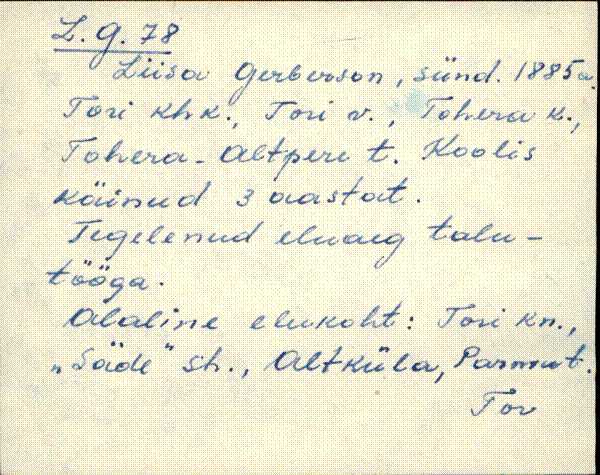 L. G. 78
Liisa Gerberson, sünd. 1885 a.
Tori khk., Tori v., Tohera k.,
Tohera-Altpere t. Koolis
käinud 3 aastat.
Tegelenud eluaeg talu-
tööga.
Alaline elukoht: Tori kn.,
„Säde" sh., Altküla, t.
Tor